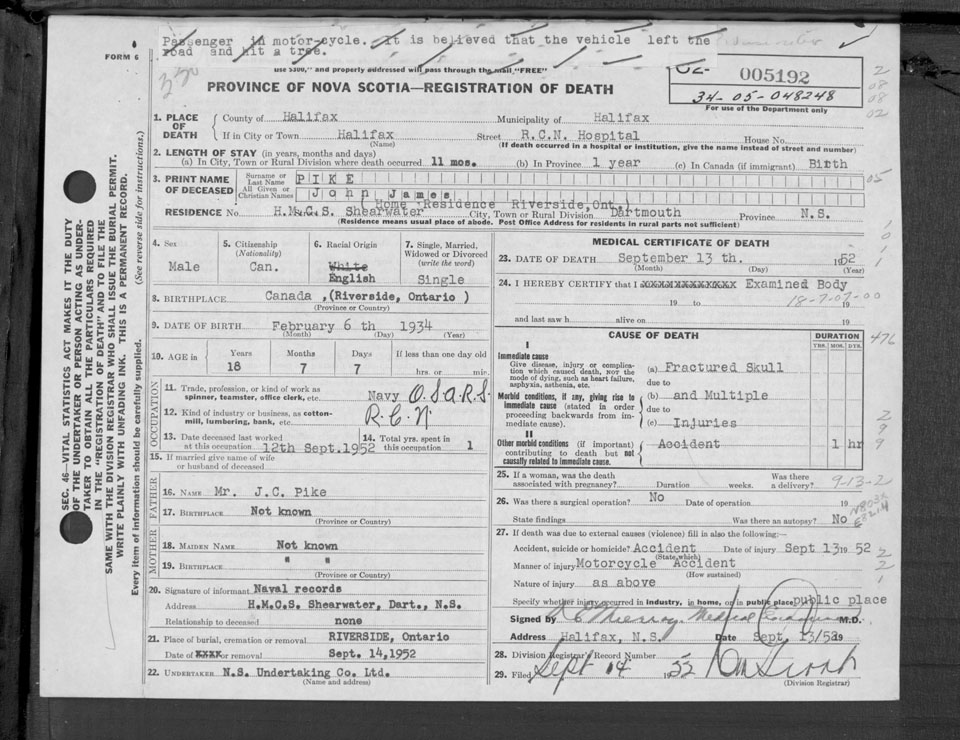 Passenger in motor-cycle. It is believed that the vehicle left the
road and hit a tree.
FORM 6
use $300," and properly addressed will pass through the mail "FREE"
005192
34-05-048248
For use of the Department only
PROVINCE OF NOVA SCOTIA—REGISTRATION OF DEATH
1. PLACE OF DEATH County of Halifax Municipality of Halifax
If in City or Town Halifax Street R.C.N. Hospital House No.
(Name) (If death occurred in a hospital or institution, give the name instead of street and number)
2. LENGTH OF STAY (in years, months and days)
(a) In City, Town or Rural Division where death occurred 11 mos. (b) In Province 1 year (c) In Canada (if immigrant) Birth
3. PRINT NAME OF DECEASED Surname or Last Name PIKE
All Given or Christian Names John James
( Home Residence Riverside, Ont.)
RESIDENCE No. H.M.C.S. Shearwater City, Town or Rural Division Dartmouth Province N.S.
(Residence means usual place of abode. Post Office Address for residents in rural parts not sufficient)
4. Sex Male
5. Citizenship (Nationality) Can.
6. Racial Origin White English
7. Single, Married, Widowed or Divorced (write the word) Single
8. BIRTHPLACE Canada ,(Riverside, Ontario )
(Province or Country)
9. DATE OF BIRTH February 6 th 1934
(Month) (Day) (Year)
10. AGE in Years Months Days If less than one day old
18 7 7 hrs. or min.
OCCUPATION
11. Trade, profession, or kind of work as spinner, teamster, office clerk, etc. Navy O.S.A.R.S.
12. Kind of industry or business, as cotton-mill, lumbering, bank, etc. R.C.N
13. Date deceased last worked at this occupation 12th Sept.1952
14. Total yrs. spent in this occupation 1
15. If married give name of wife or husband of deceased
FATHER
16. NAME Mr. J.C. Pike
17. BIRTHPLACE Not known
(Province or Country)
MOTHER
18. MAIDEN NAME Not known
19. BIRTHPLACE " "
(Province or Country)
20. Signature of informant Naval records
Address H.M.C.S. Shearwater, Dart., N.S.
Relationship to deceased none
21. Place of burial, cremation or removal RIVERSIDE, Ontario
Date of XXXX or removal Sept. 14,1952
22. UNDERTAKER N.S. Undertaking Co. Ltd.
(Name and address)
MEDICAL CERTIFICATE OF DEATH
23. DATE OF DEATH September 13 th. 1952
(Month) (Day) (Year)
24. I HEREBY CERTIFY that I XXXXXXXXXXXX Examined Body
19 to 19
18-7-07-00
and last saw h alive on 19
CAUSE OF DEATH DURATION
YRS. MOS. DYS.
476
I
Immediate cause
Give disease, injury or complication which caused death, NOT the mode of dying, such as heart failure, asphyxia, asthenia, etc.
(a) Fractured Skull
due to
Morbid conditions, if any, giving rise to immediate cause (stated in order proceeding backwards from immediate cause).
(b) and Multiple
due to
(c) Injuries
II
Other morbid conditions (if important) contributing to death but not causally related to immediate cause.
Accident 1 hr
25. If a woman, was the death associated with pregnancy? Duration weeks. Was there a delivery?
9-13-2
26. Was there a surgical operation? No Date of operation 19
State findings Was there an autopsy? No
27. If death was due to external causes (violence) fill in also the following:—
Accident, suicide or homicide? Accident Date of injury Sept 13 19 52
(State which)
Manner of injury Motorcycle Accident
(How sustained)
Nature of injury as above
Specify whether injury occurred in industry, in home, or in public place public place
Signed by Medical Examiner M.D.
Address Halifax, N.S. Date Sept. 13/52 19
28. Division Registrar's Record Number
29. Filed Sept 14 1952
(Division Registrar)
SEC. 46—VITAL STATISTICS ACT MAKES IT THE DUTY
OF THE UNDERTAKER OR PERSON ACTING AS UNDER-
TAKER TO OBTAIN ALL THE PARTICULARS REQUIRED
IN THE "REGISTRATION OF DEATH" AND TO FILE THE
SAME WITH THE DIVISION REGISTRAR WHO SHALL ISSUE THE BURIAL PERMIT.
WRITE PLAINLY WITH UNFADING INK. THIS IS A PERMANENT RECORD.
Every item of information should be carefully supplied. (See reverse side for instructions.)